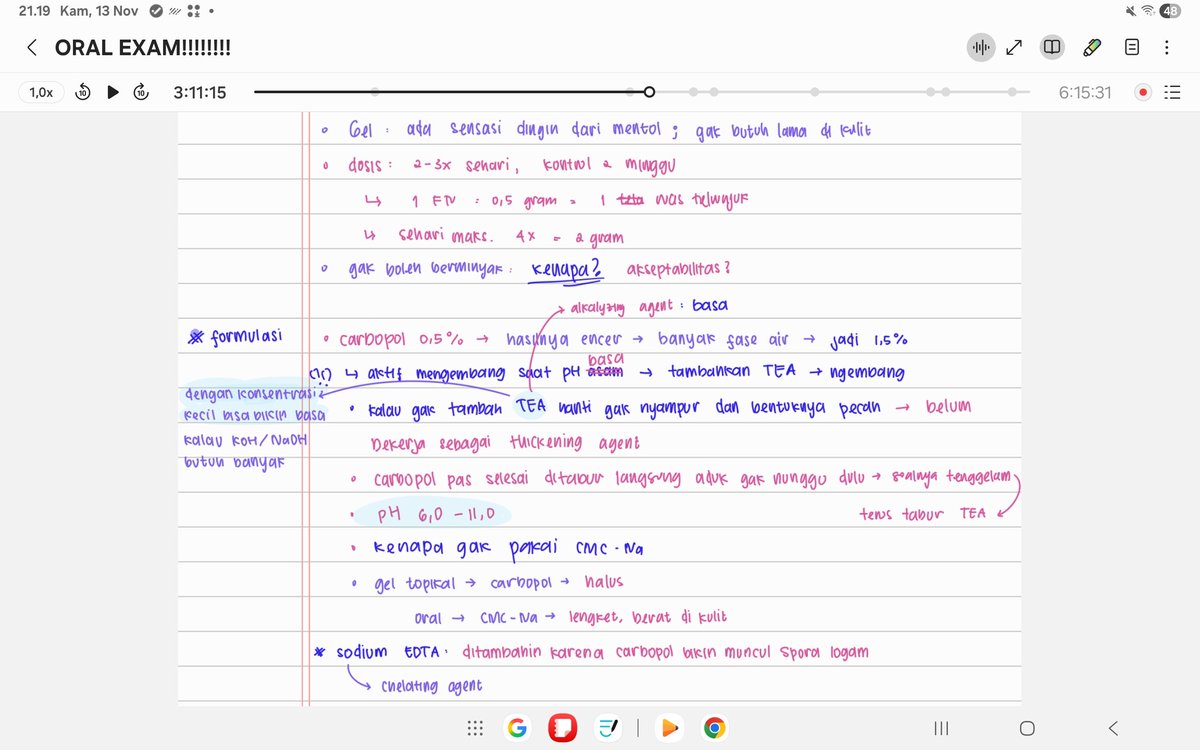 21.19 Kam, 13 Nov
48
ORAL EXAM!!!!!!!!
1,0x 10 10 3:11:15 6:15:31
• Gel : ada sensasi dingin dari mentol ; gak butuh lama di kulit
• dosis : 2-3x sehari, kontrol 2 minggu
↳ 1 FTU : 0,5 gram = 1 ruas telunjuk
↳ sehari maks. 4x = 2 gram
• gak boleh berminyak : kenapa? akseptabilitas?
→ alkalyzing agent : basa
* formulasi
• carbopol 0,5% → hasilnya encer → banyak fase air → jadi 1,5%
basa
↳ aktif mengembang saat pH asam → tambahkan TEA → ngembang
dengan konsentrasi
kecil bisa bikin basa
kalau KOH/NaOH
butuh banyak
• kalau gak tambah TEA nanti gak nyampur dan bentuknya pecah → belum
bekerja sebagai thickening agent
• carbopol pas selesai ditabur langsung aduk gak nunggu dulu → soalnya tenggelam
terus tabur TEA
• pH 6,0 - 11,0
• kenapa gak pakai CMC-Na
• gel topikal → carbopol → halus
oral → CMC-Na → lengket, berat di kulit
* sodium EDTA : ditambahin karena carbopol bikin muncul spora logam
→ chelating agent